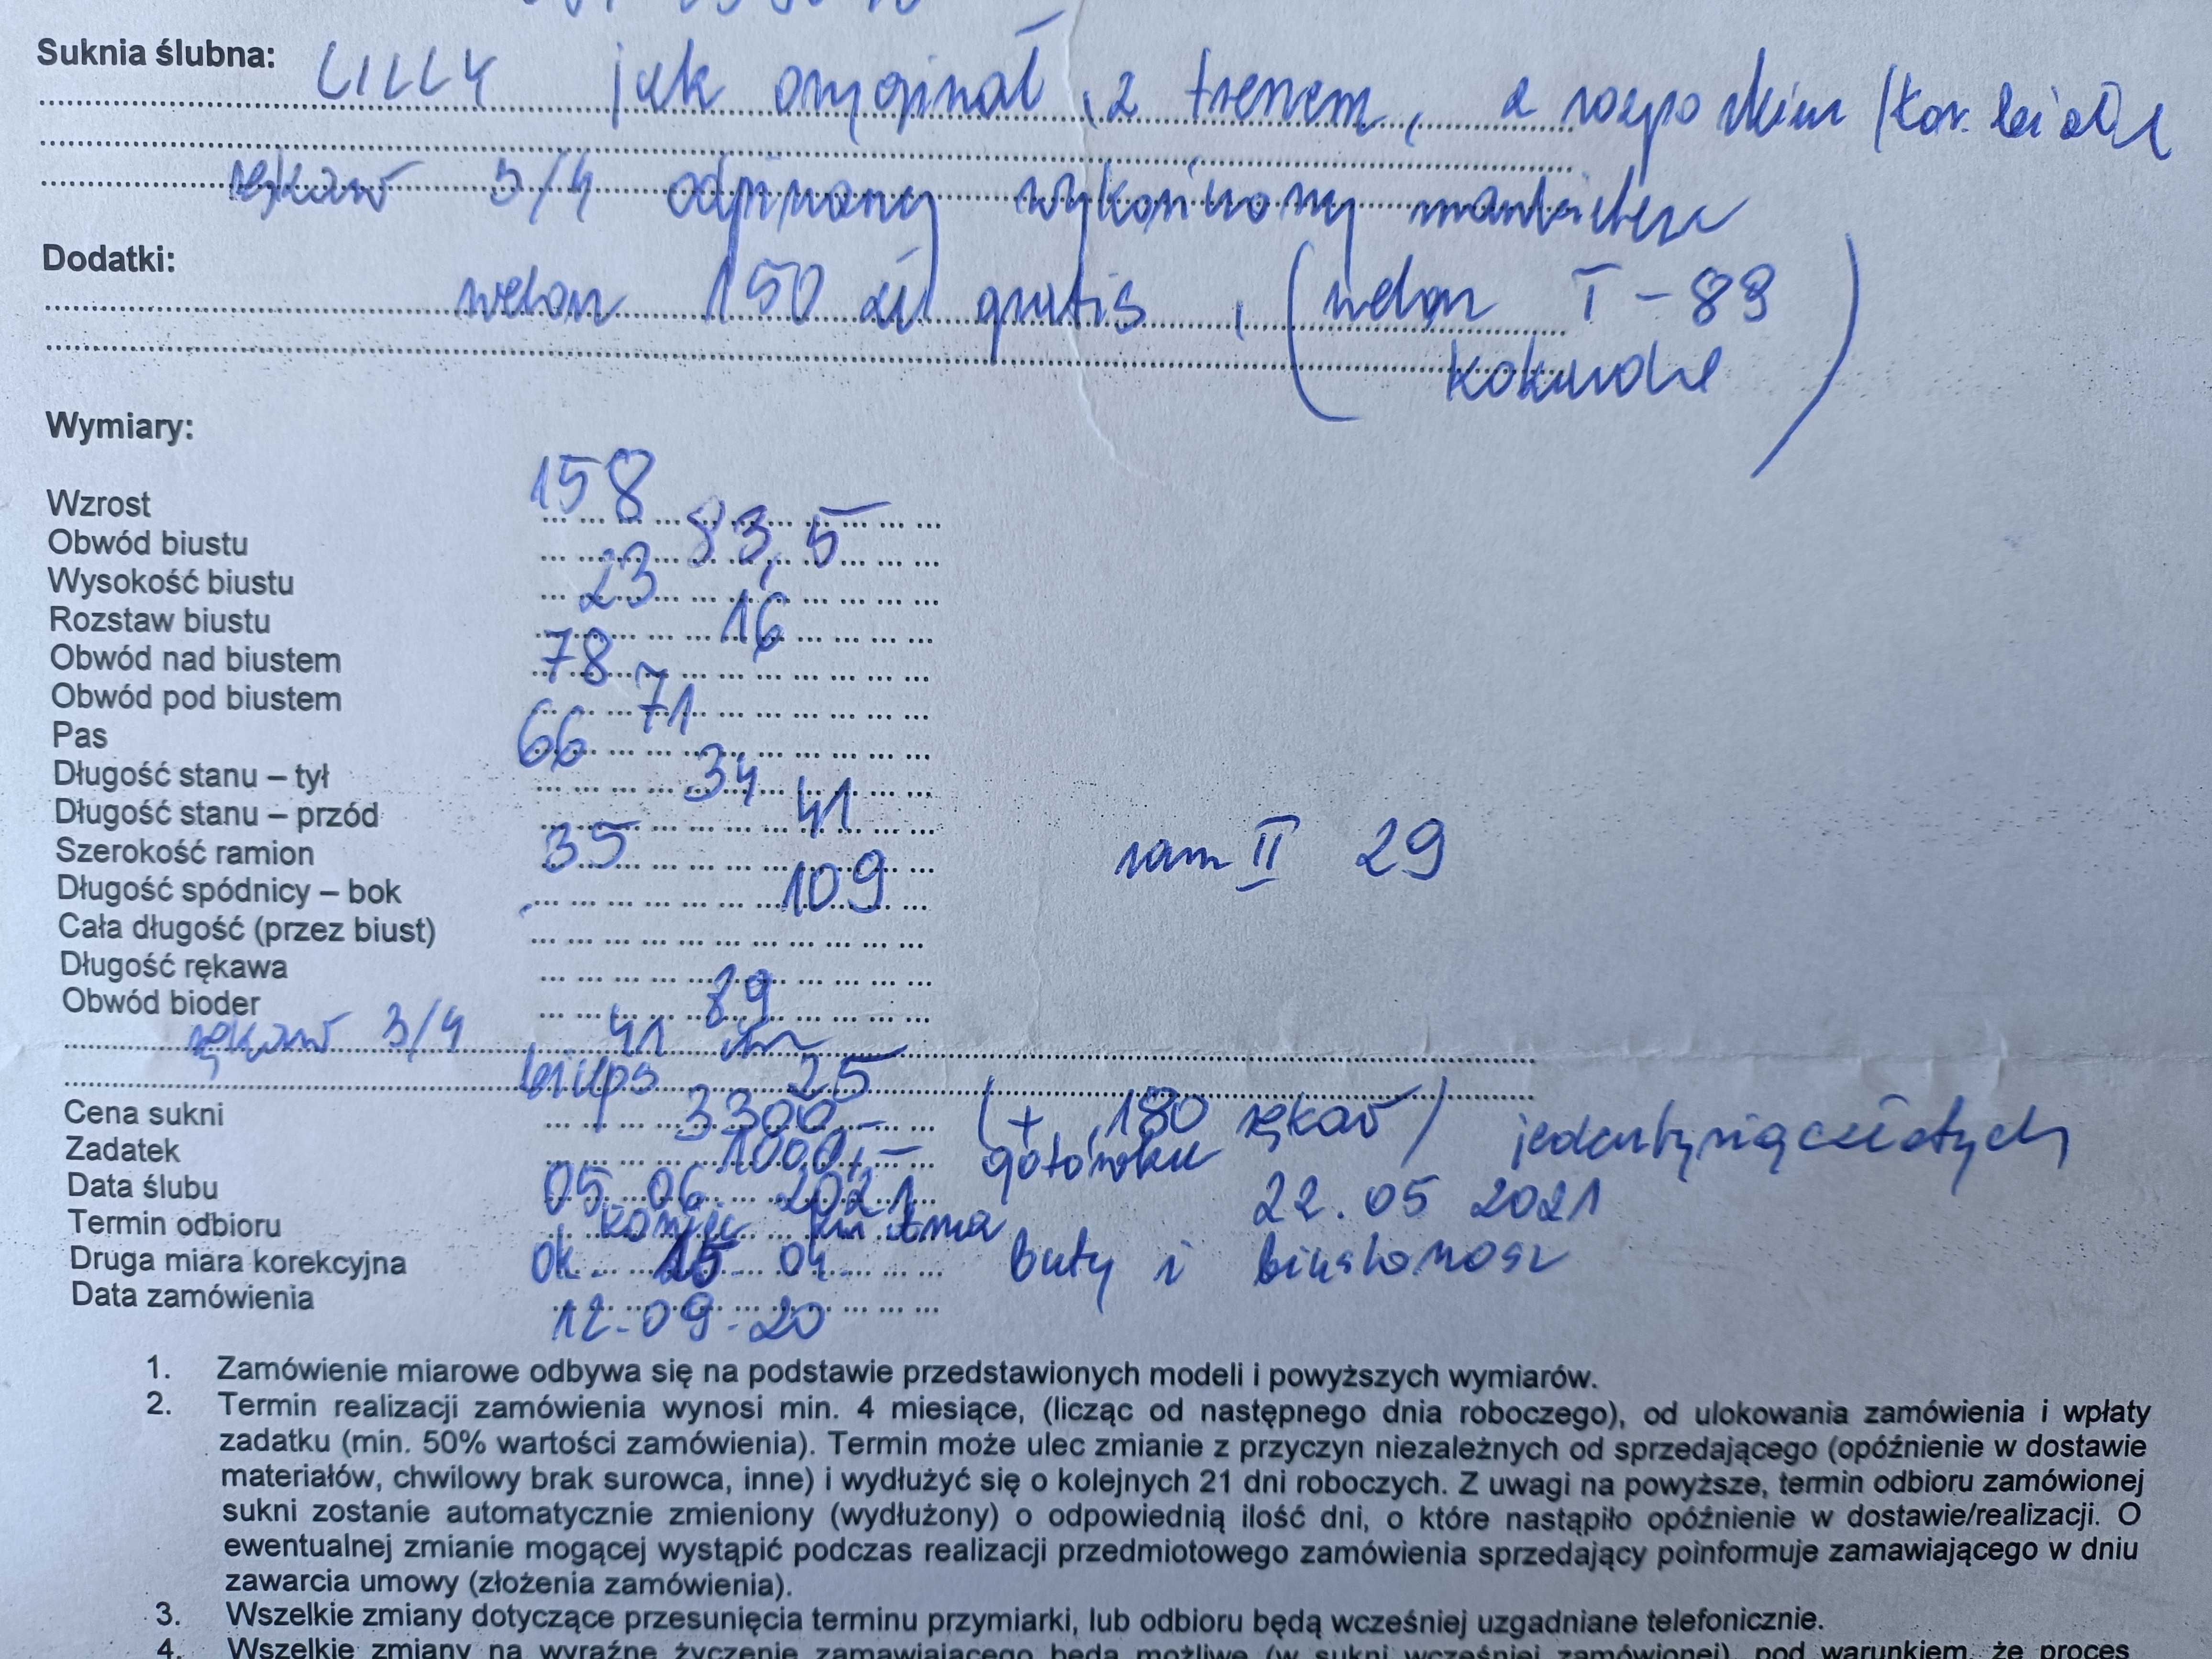 Suknia ślubna: LILLY jak oryginał, z trenem, z rozporkiem (kor.
rękaw 3/4 odpinany wykończony mankietem
Dodatki:
welon 150 zł gratis, (welon I - 89
kokardke)
Wymiary:
Wzrost 158
Obwód biustu 83,5
Wysokość biustu 23
Rozstaw biustu 16
Obwód nad biustem 78
Obwód pod biustem 71
Pas 66
Długość stanu – tył 34
Długość stanu – przód 41
Szerokość ramion 35 ram II 29
Długość spódnicy – bok 109
Cała długość (przez biust)
Długość rękawa
Obwód bioder 89
rękaw 3/4 41 cm
biceps 25
Cena sukni 3300,- (+ 180 rękaw) jedentysiączłotych
Zadatek 1000,- gotówka
Data ślubu 05 06 2021 22.05 2021
Termin odbioru koniec kwietnia
Druga miara korekcyjna ok. 15 04 buty i biustonosz
Data zamówienia 12-09-20
1. Zamówienie miarowe odbywa się na podstawie przedstawionych modeli i powyższych wymiarów.
2. Termin realizacji zamówienia wynosi min. 4 miesiące, (licząc od następnego dnia roboczego), od ulokowania zamówienia i wpłaty
zadatku (min. 50% wartości zamówienia). Termin może ulec zmianie z przyczyn niezależnych od sprzedającego (opóźnienie w dostawie
materiałów, chwilowy brak surowca, inne) i wydłużyć się o kolejnych 21 dni roboczych. Z uwagi na powyższe, termin odbioru zamówionej
sukni zostanie automatycznie zmieniony (wydłużony) o odpowiednią ilość dni, o które nastąpiło opóźnienie w dostawie/realizacji. O
ewentualnej zmianie mogącej wystąpić podczas realizacji przedmiotowego zamówienia sprzedający poinformuje zamawiającego w dniu
zawarcia umowy (złożenia zamówienia).
3. Wszelkie zmiany dotyczące przesunięcia terminu przymiarki, lub odbioru będą wcześniej uzgadniane telefonicznie.
4. Wszelkie zmiany na wyraźne życzenie zamawiającego będą możliwe (w sukni wcześniej zamówionej), pod warunkiem, że proces